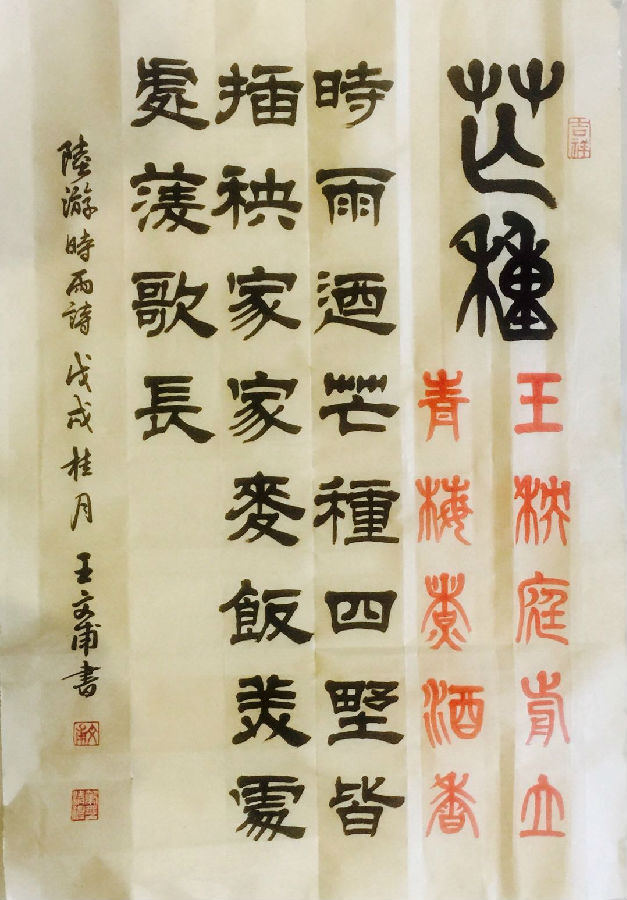 吉祥
芒種
玉秧庭前立
青梅煮酒香
時雨迺芒種四野皆
插秧家家麥飯美處
處菱歌長
陸游時雨詩 戊戌桂月 王文甫書
文甫